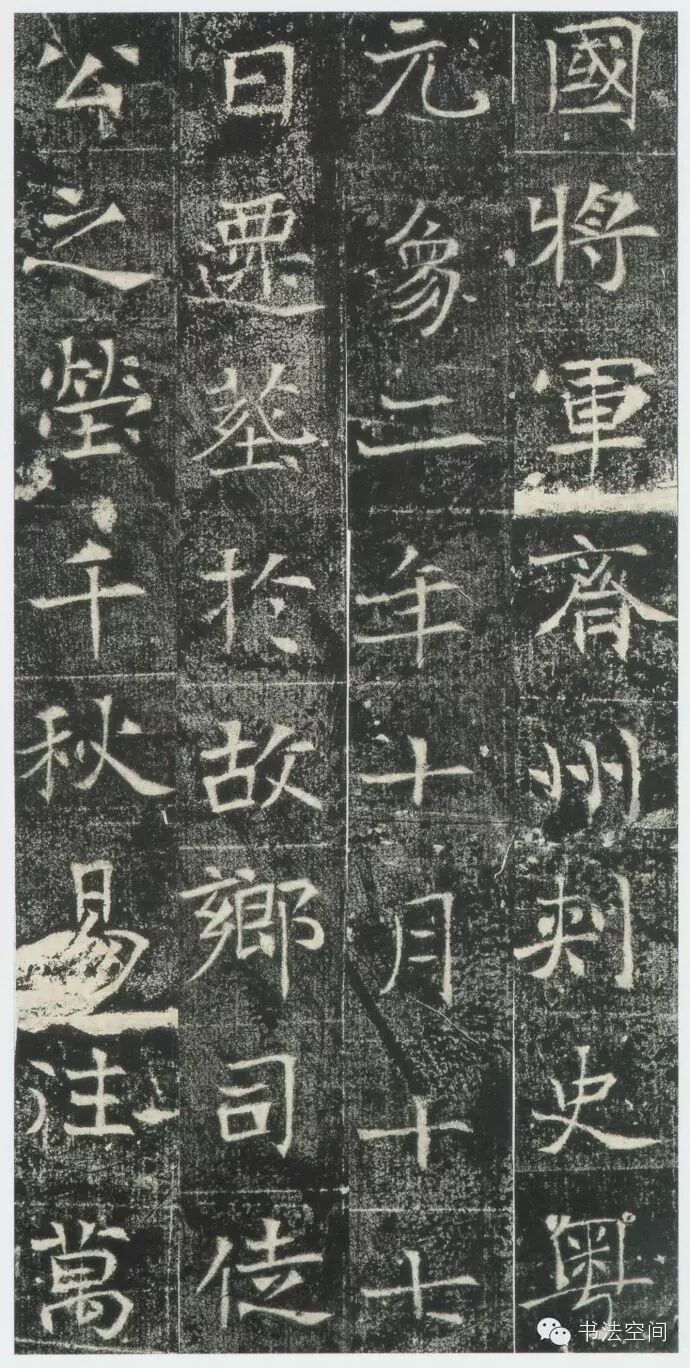 國將軍齊州刺史粤
元象二年十月十七
日遷葬於故鄉司徒
公之塋千秋易注萬
书法空间